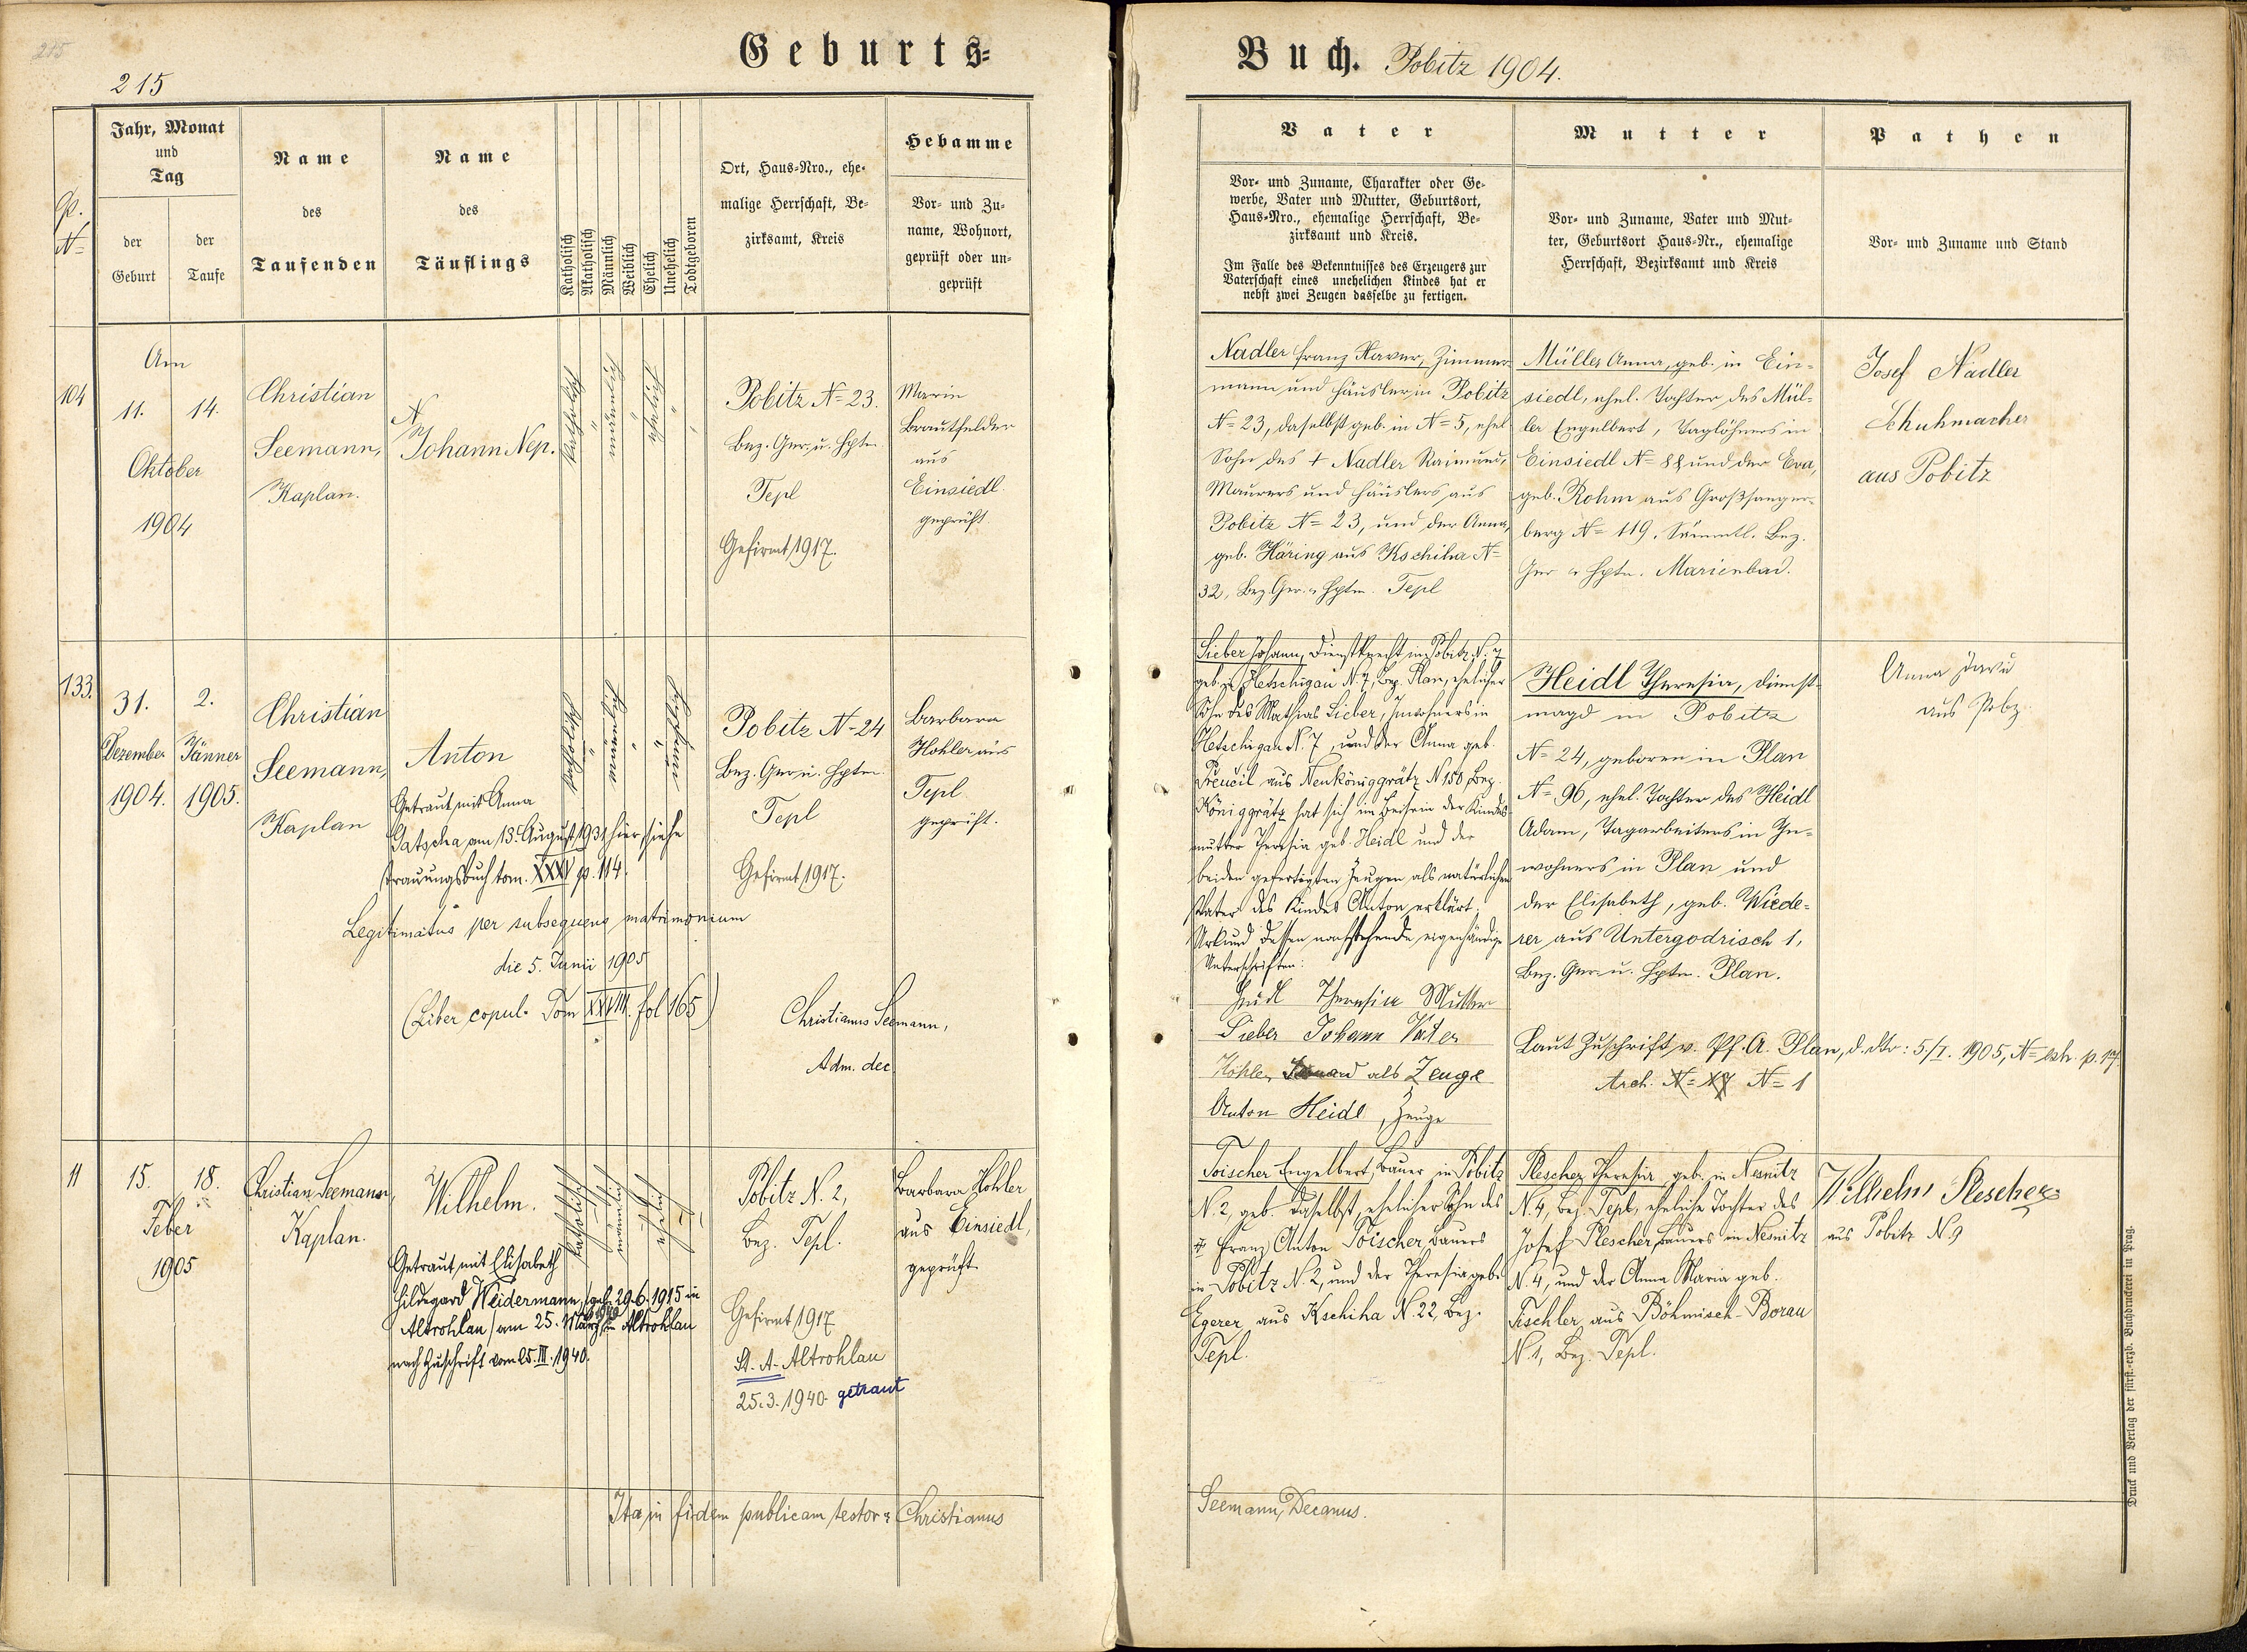 215
215
Geburts-
Buch. Pobitz 1904.
Gp. N=
Jahr, Monat
und
Tag
der
Geburt
der
Taufe
Name
des
Taufenden
Name
des
Täuflings
Katholisch
Akatholisch
Männlich
Weiblich
Ehelich
Unehelich
Todtgeboren
Ort, Haus-Nro., ehe-
malige Herrschaft, Be-
zirksamt, Kreis
Hebamme
Vor- und Zu-
name, Wohnort,
geprüft oder un-
geprüft
Vater
Vor- und Zuname, Charakter oder Ge-
werbe, Vater und Mutter, Geburtsort,
Haus-Nro., ehemalige Herrschaft, Be-
zirksamt und Kreis.
Im Falle des Bekenntnisses des Erzeugers zur
Vaterschaft eines unehelichen Kindes hat er
nebst zwei Zeugen dasselbe zu fertigen.
Mutter
Vor- und Zuname, Vater und Mut-
ter, Geburtsort Haus-Nr., ehemalige
Herrschaft, Bezirksamt und Kreis
Pathen
Vor- und Zuname und Stand
104
Am
11. 14.
Oktober
1904
Christian
Seemann,
Kaplan.
Johann Nep.
Pobitz N= 23.
Bez. Ger. u. Hptm.
Tepl
Gefirmt 1917.
Marie
Brautfelder
aus
Einsiedl.
geprüft
Nadler Franz Xaver, Zimmer-
mann und Häusler in Pobitz
N= 23, daselbst geb. in N= 5, ehel
Sohn des + Nadler Raimund,
Maurers und Häuslers aus
Pobitz N= 23, und der Anna,
geb. Häring aus Kschiha N=
32, Bez. Ger. u. Hptm. Tepl
Müller Anna, geb. in Ein-
siedl, ehel. Tochter des Mül-
ler Engelbert, Taglöhners in
Einsiedl N= 88 und der Eva,
geb. Rohm aus Großsanger-
berg N= 119. Sämmtl. Bez.
Ger u Hptm. Marienbad.
Josef Nadler
Schuhmacher
aus Pobitz
133.
31. 2.
Dezember Jänner
1904. 1905.
Christian
Seemann,
Kaplan
Anton
Getraut mit Anna
am 13. August 1931 hier siehe
Trauungsbuch tom. XXXV p. 114.
Legitimatus per subsequens matrimonium
die 5. Junii 1905
(Liber copul. Tom XXVIII. fol 165)
Christianus Seemann,
Adm. dec
Pobitz N= 24
Bez. Ger u. Hptm.
Tepl
Gefirmt 1917.
Barbara
Kohler aus
Tepl.
geprüft.
Sieber Johann, Dienstknecht in Pobitz N. 7
geb. in Hetschigau N. 7, Bez. Plan, ehelicher
Sohn des Mathias Sieber, Inwohners in
Hetschigau N. 7, und der Anna geb.
aus Neuköniggrätz N 150, Bez.
Königgrätz hat sich im Beisein der Kindes
mutter Theresia geb. Heidl und der
beiden gefertigten Zeugen als natürlicher
Vater des Kindes Anton erklärt.
Urkund dessen nachstehende eigenhändige
Unterschriften:
Heidl Theresia Mutter
Sieber Johann Vater
Kohler als Zeuge
Anton Heidl, Zeuge
Heidl Theresia, Dienst-
magd in Pobitz
N= 24, geboren in Plan
N= 96, ehel. Tochter des Heidl
Adam, Tagarbeiters in In-
wohners in Plan und
der Elisabeth, geb. Wiede-
rer aus Untergodrisch 1,
Bez. Ger. u. Hptm. Plan.
Laut Zuschrift v. Pf. A. Plan, d. dto: 5./I. 1905, N= exh. p. 17.
Arch. N= 17 N= 1
Anna
aus
11
15. 18.
Feber
1905
Christian Seemann,
Kaplan.
Wilhelm.
Getraut mit Elisabeth
Hildegard Weidermann, (geb. 29.6.1915 in
Altrohlau) am 25. März 1940 in Altrohlau
nach Zuschrift vom 25. III. 1940.
Pobitz N. 2,
Bez. Tepl.
Gefirmt 1917
St. A. Altrohlau
25.3.1940 getraut
Barbara Kohler
aus Einsiedl,
geprüft
Toischer Engelbert, Bauer in Pobitz
N. 2, geb. daselbst, ehelicher Sohn des
Franz Anton Toischer, Bauers
in Pobitz N. 2, und der Theresia geb.
Egerer aus Kschiha N. 22, Bez.
Tepl.
Plescher Theresia, geb. in Nesnitz
N. 4, Bez. Tepl, eheliche Tochter des
Josef Plescher, Bauers in Nesnitz
N. 4, und der Anna Maria geb.
Tischler aus Böhmisch-Borau
N. 1, Bez. Tepl.
Wilhelm Plescher
aus Pobitz N. 9
Ita in fidem publicam testor: Christianus
Seemann, Decanus.
Druck und Verlag der fürst.-erzb. Buchdruckerei in Prag.